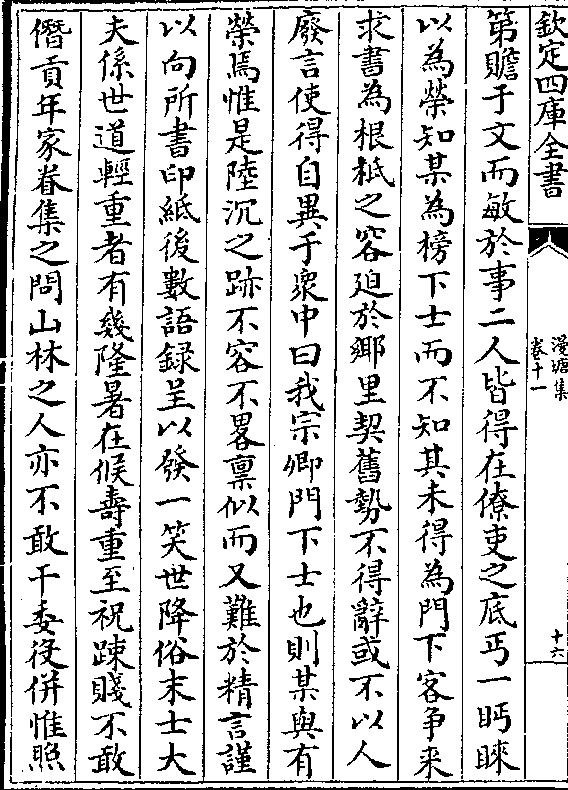 欽定四庫全書
漫塘集
卷十一
十六
第贍于文而敏於事二人皆得在僚吏之底丐一眄睞
以為榮知某為榜下士而不知其未得為門下客争来
求書為根柢之容廹於鄉里契舊勢不得辭或不以人
廢言使得自異于衆中曰我宗卿門下士也則某與有
榮焉惟是陸沉之跡不容不畧禀似而又難於精言謹
以向所書印紙後數語録呈以發一笑世降俗末士大
夫係世道輕重者有幾隆暑在候壽重至祝踈賤不敢
僭貢年家眷集之問山林之人亦不敢干委役併惟照